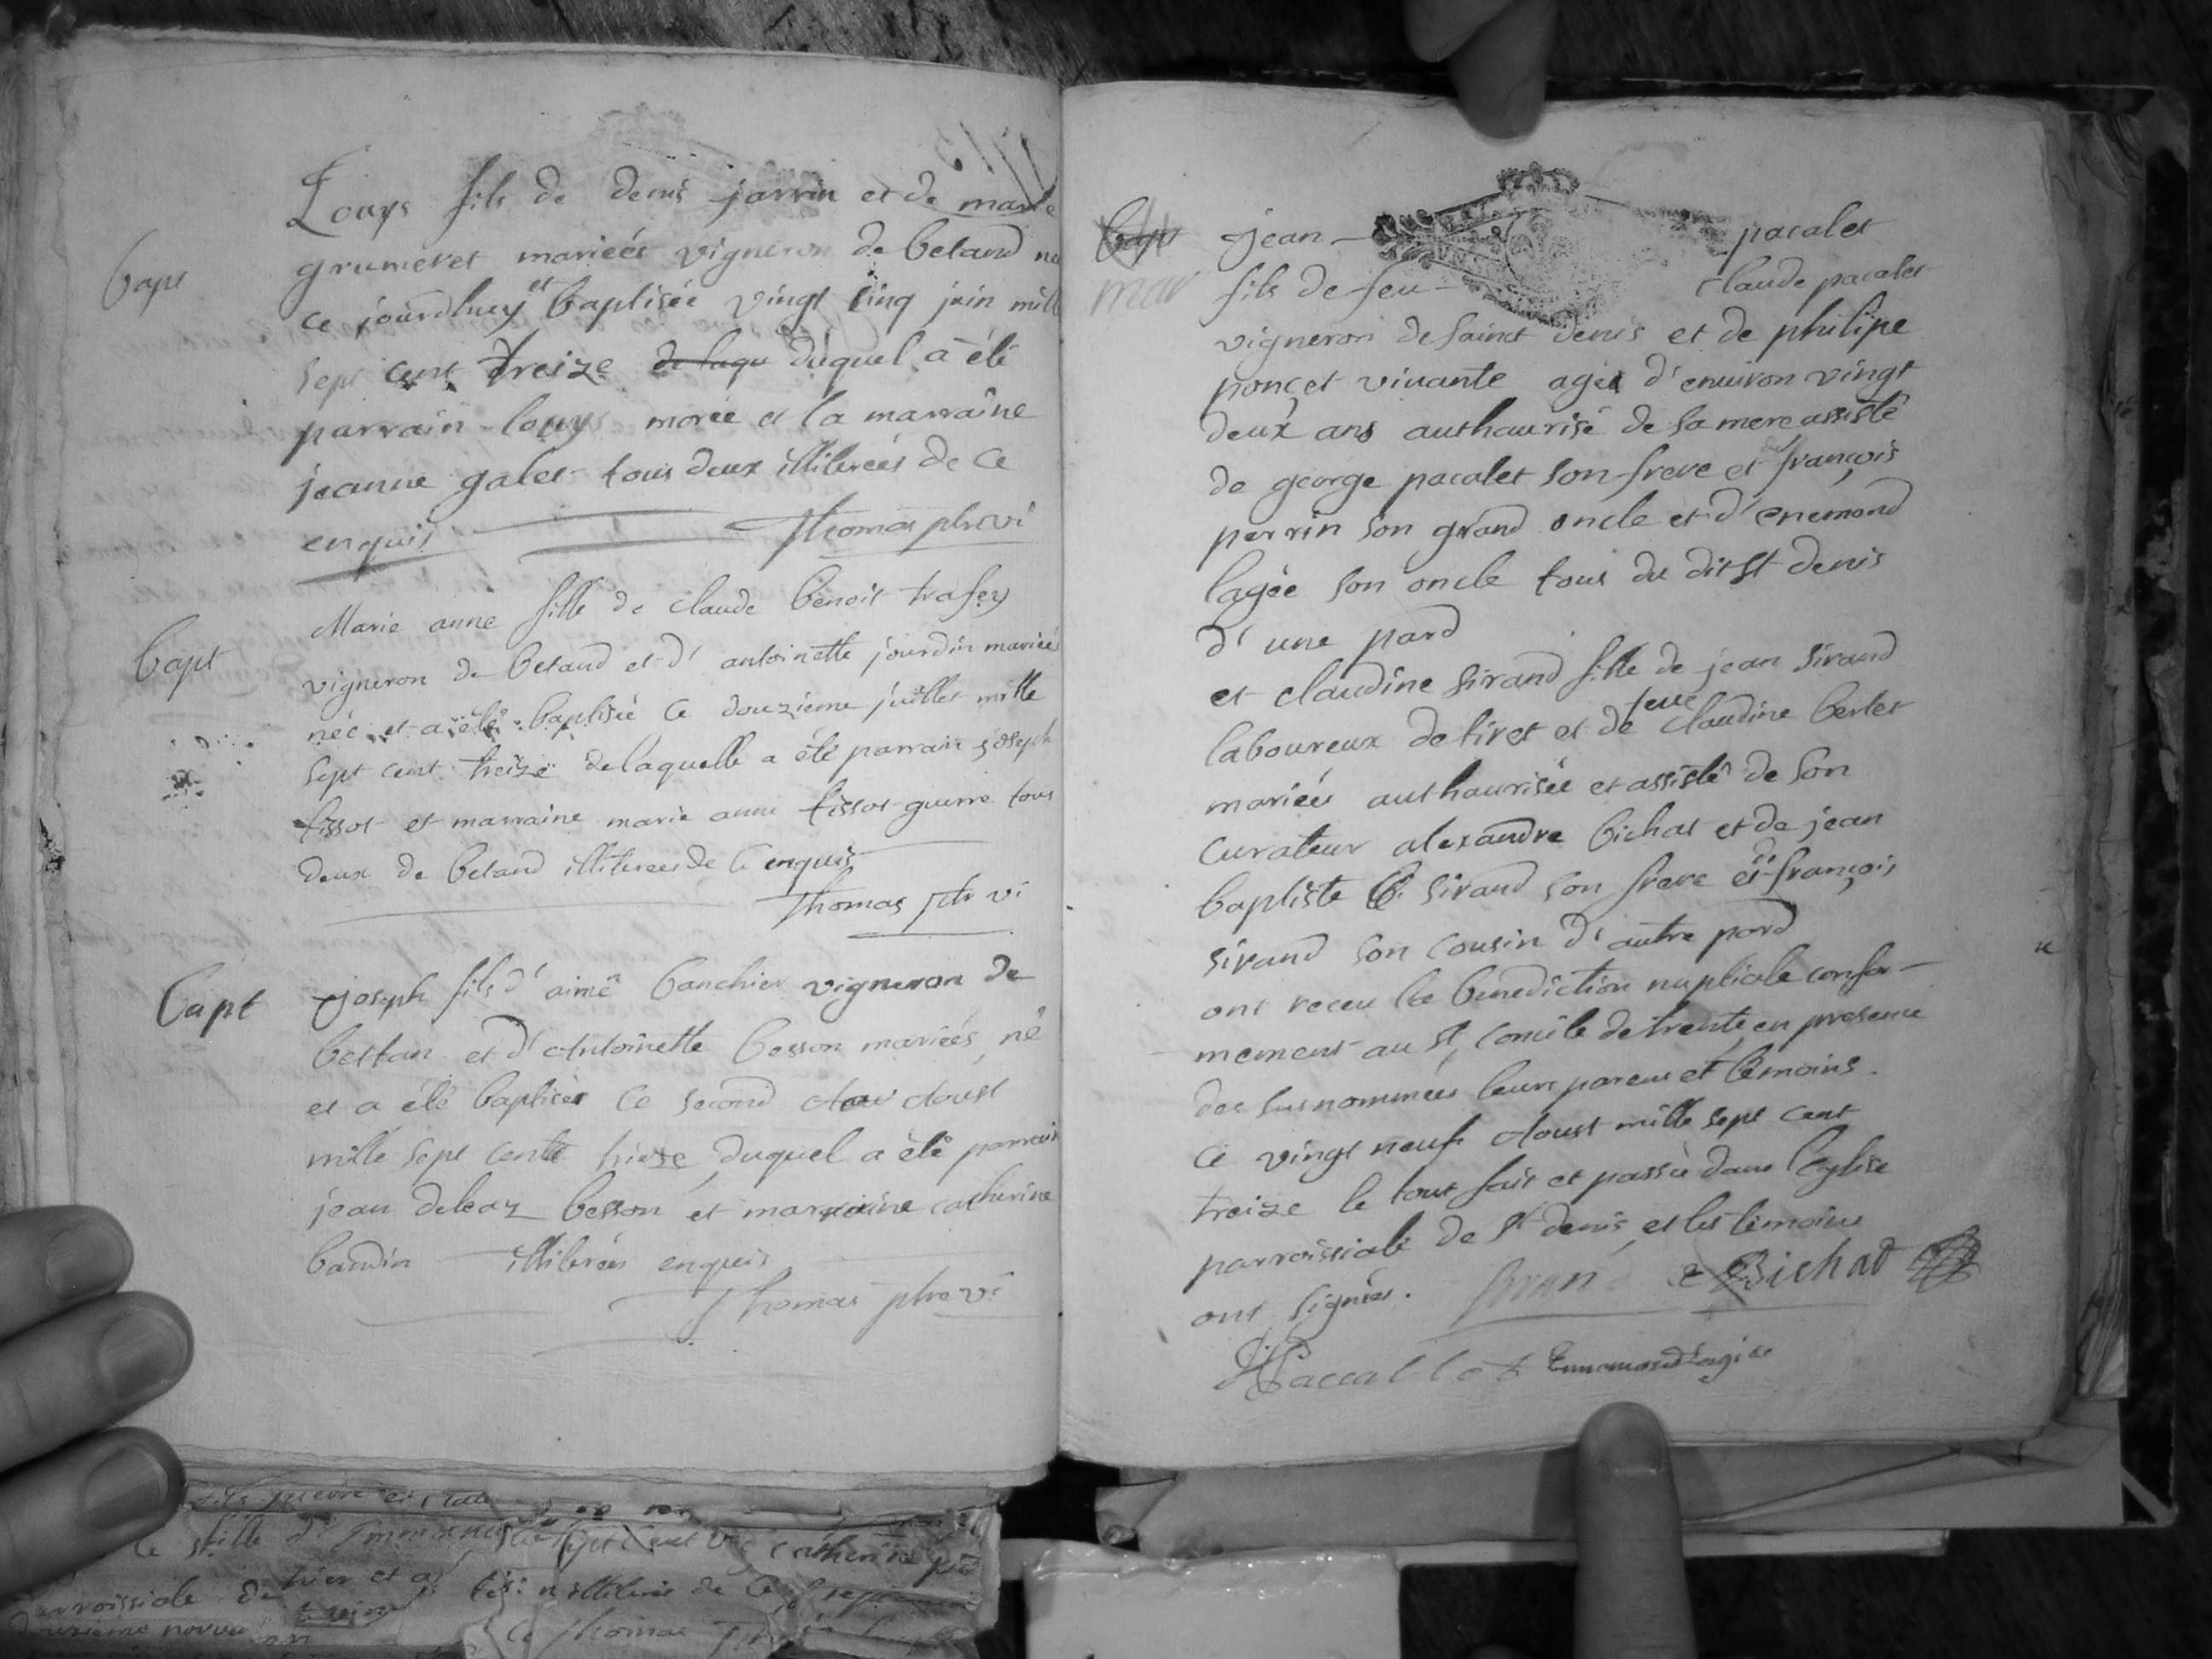 Louys fils de denis jarrin et de marie
bapt
grumeret mariées vigneron de betand né
ce jourdhuy et baptisée vingt cinq juin mille
sept cent treize de laqu duquel a été
parrain louys morée et la marraine
jeanne galet tous deux illiterées de ce
enquis Thomas ptre vi
bapt
Marie anne fille de claude benoit trafey
vigneron de betand et d'antoinette jourdin mariées
née et a été baptisée ce douzième juillet mille
sept cent treize de laquelle a été parrain joseph
tissot et marraine marie anne tissot guerre tous
deux de betand illiterees de ce enquis
Thomas ptr vi
bapt
joseph fils d'aimé banchier vigneron de
bettan et d'Antoinette besson mariées, né
et a été baptisée ce second Aoust
mille sept cente trieze duquel a été parrain
jean deleaz besson et marraine catherine
baudin illiterées enquis
Thomas ptre vi
bapt
mar
jean pacalet
fils de feu claude pacalet
vigneron de sainct denis et de philipe
ponçet vivante agée d'environ vingt
deux ans authaurisé de sa mere assisté
de george pacalet son frere et de françois
perrin son grand oncle et d'enemond
lagée son oncle tous du dit st denis
d'une pard
et claudine sirand fille de jean sirand
laboureux de tiret et de feue claudine berlet
mariées authaurisée et assisté de son
curateur alexandre bichat et de jean
baptiste sirand son frere et de françois
sirand son cousin d'autre pard
ont receu la benediction nuptiale confor-
mement au st concile de trente, en presence
des susnommées leurs parens et témoins.
ce vingt neuf Aoust mille sept cent
treize le tout fait et passée dans l'eglise
parroissiale de st denis, et les témoins
ont signées. Sirand Bichat
Paccallet Ennemond Lagie